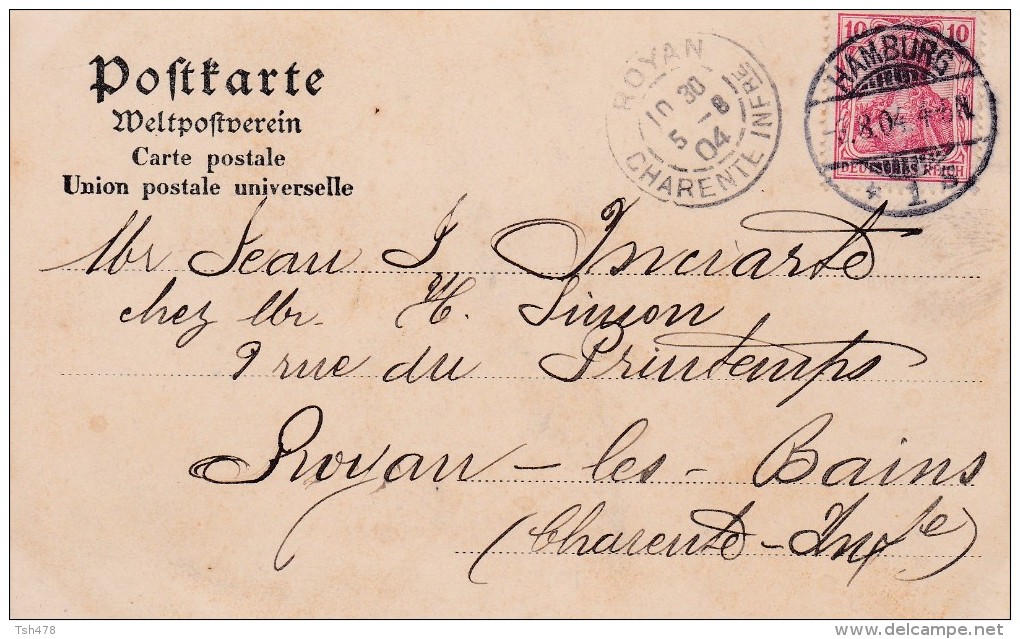 Postkarte
Weltpostverein
Carte postale
Union postale universelle
ROYAN
10 30
5 - 8
04
CHARENTE INFRE
10 10
HAMBURG
8.04. 4-5 N.
DEUTSCHES REICH
* 1 *
Mr Jean J Inciarte
chez Mr. H. Simon
9 rue du Printemps
Royan - les - Bains
(Charente - Infre)
Tsh478
delcampe.net